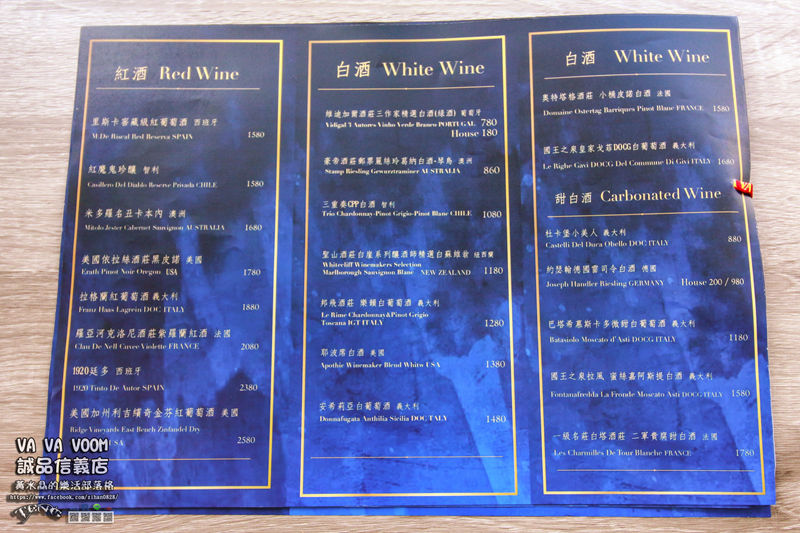 紅酒 Red Wine
里斯卡窖藏級紅葡萄酒 西班牙
M.De Riscal Red Reserva SPAIN 1580
紅魔鬼珍釀 智利
Casillero Del Diablo Reserve Privada CHILE 1580
米多羅名丑卡本內 澳洲
Mitolo Jester Cabernet Sauvignon AUSTRALIA 1680
美國依拉絲酒莊黑皮諾 美國
Erath Pinot Noir Oregon USA 1780
拉格蘭紅葡萄酒 義大利
Franz Haas Lagrein DOC ITALY 1880
羅亞河克洛尼酒莊紫羅蘭紅酒 法國
Clau De Nell Cuvee Violette FRANCE 2080
1920廷多 西班牙
1920 Tinto De Autor SPAIN 2380
美國加州利吉縯奇金芬紅葡萄酒 美國
Ridge Vineyards East Bench Zinfandel Dry
USA 2580
白酒 White Wine
維迪加爾酒莊三作家精選白酒(綠酒) 葡萄牙
Vidigal 3 Autores Vinho Verde Branco PORTUGAL 780
House 180
豪帝酒莊郵票麗絲玲葛納白酒-琴鳥 澳洲
Stamp Riesling Gewurztraminer AUSTRALIA 860
三重奏CPP白酒 智利
Trio Chardonnay-Pinot Grigio-Pinot Blanc CHILE 1080
聖山酒莊白崖系列釀酒師精選白蘇維翁 紐西蘭
Whitecliff Winemakers Selection
Marlborough Sauvignon Blanc NEW ZEALAND 1180
邦飛酒莊 樂頌白葡萄酒 義大利
Le Rime Chardonnay&Pinot Grigio
Toscana IGT ITALY 1280
耶波席白酒 美國
Apothic Winemaker Blend Whitw USA 1380
安希莉亞白葡萄酒 義大利
Donnafugata Anthilia Sicilia DOC TALY 1480
白酒 White Wine
奧特塔格酒莊 小桶皮諾白酒 法國
Domaine Ostertag Barriques Pinot Blanc FRANCE 1580
國王之泉皇家戈莊DOCG白葡萄酒 義大利
Le Righe Gavi DOCG Del Commune Di Givi ITALY 1680
甜白酒 Carbonated Wine
杜卡堡小美人 義大利
Castelli Del Duca Obello DOC ITALY 880
約瑟翰德國雷司令白酒 德國
Joseph Handler Riesling GERMANY House 200 / 980
巴塔希慕斯卡多微甜白葡萄酒 義大利
Batasiolo Moscato d'Asti DOCG ITALY 1180
國王之泉拉風 蜜絲嘉阿斯提白酒 義大利
Fontanafredda La Fronde Moscato Asti DOCG ITALY 1580
一級名莊白塔酒莊 二軍貴腐甜白酒 法國
Les Charmilles De Tour Blanche FRANCE 1780
VA VA VOOM
誠品信義店
黃水晶的樂活部落格
https://www.facebook.com/zihan0828/